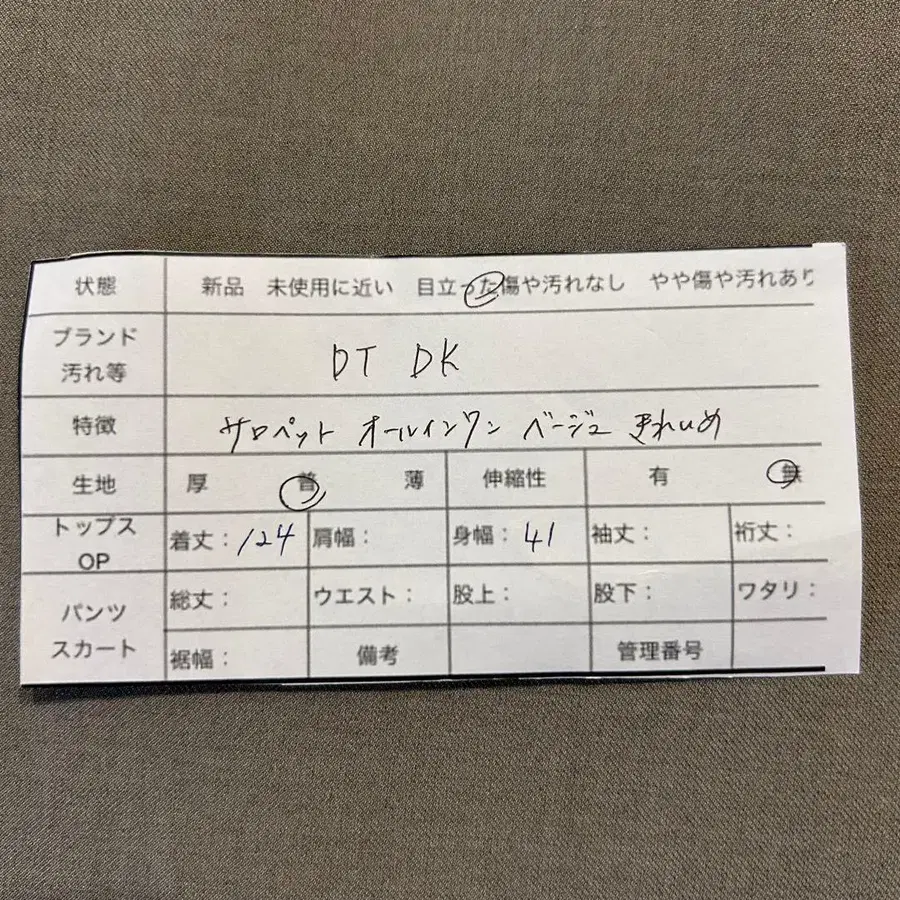 状態 新品 未使用に近い 目立った傷や汚れなし やや傷や汚れあり
ブランド
汚れ等 DT DK
特徴 サロペット オールインワン ベージュ きれいめ
生地 厚 普 薄 伸縮性 有 無
トップス
OP 着丈：124 肩幅： 身幅：41 袖丈： 裄丈：
パンツ
スカート 総丈： ウエスト： 股上： 股下： ワタリ：
裾幅： 備考 管理番号